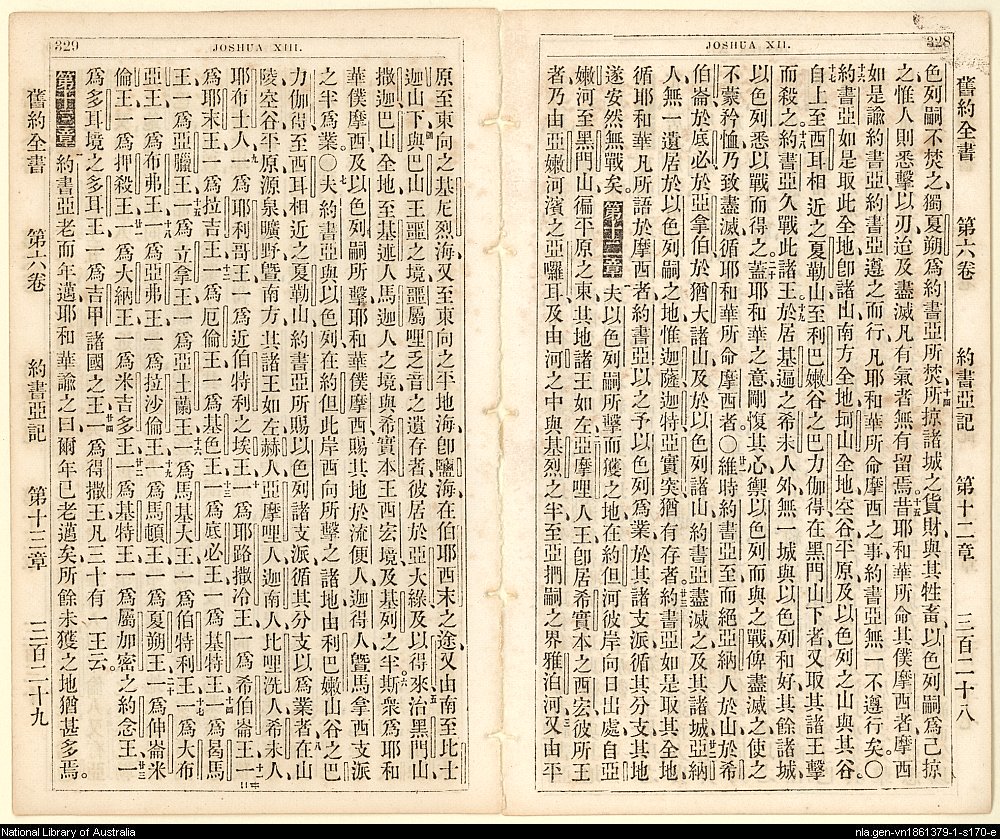 328
JOSHUA XII.
舊約全書 第六卷 約書亞記 第十二章 三百二十八
色列嗣不焚之獨夏朔爲約書亞所焚所掠諸城之貨財與其牲畜以色列嗣爲己掠
之惟人則悉擊以刃迨及盡滅凡有氣者無有留焉昔耶和華所命其僕摩西者摩西
如是諭約書亞約書亞遵之而行凡耶和華所命摩西之事約書亞無一不遵行矣〇
約書亞如是取此全地卽諸山南方全地坷山全地空谷平原及以色列之山與其谷
自上至西耳相近之夏勒山至利巴嫩谷之巴力伽得在黑門山下者又取其諸王擊
而殺之約書亞久戰此諸王於居基遍之希未人外無一城與以色列和好其餘諸城
以色列悉以戰而得之蓋耶和華之意剛愎其心禦以色列而與之戰俾盡滅之使之
不蒙矜恤乃致盡滅循耶和華所命摩西者〇維時約書亞至而絕亞納人於山於希
伯崙於底必於亞拿伯於猶大諸山及於以色列諸山約書亞盡滅之及其諸城亞納
人無一遺居於以色列嗣之地惟迦薩迦特亞實突猶有存者約書亞如是取其全地
循耶和華凡所語於摩西者約書亞以之予以色列爲業於其諸支派循其分支其地
遂安然無戰矣。第十二章 夫以色列嗣所擊而獲之地在約但河彼岸向日出處自亞
嫩河至黑門山徧平原之東其地諸王如左亞摩哩人王卽居希實本之西宏彼所王
者乃由亞嫩河濱之亞囉耳及由河之中與基烈之半至亞捫嗣之界雅泊河又由平
329
JOSHUA XIII.
原至東向之基尼烈海又至東向之平地海卽鹽海在伯耶西末之途又由南至比士
迦山下與巴山王噩之境噩屬哩乏音之遺存者彼居於亞大綠及以得來治黑門山
撒迦巴山全地至基述人馬迦人之境與希實本王西宏境及基列之半斯衆爲耶和
華僕摩西及以色列嗣所擊耶和華僕摩西賜其地於流便人迦得人曁馬拿西支派
之半爲業〇夫約書亞與以色列在約但此岸西向所擊之諸地由利巴嫩山谷之巴
力伽得至西耳相近之夏勒山約書亞所賜以色列諸支派循其分支以爲業者在山
陵空谷平原源泉曠野曁南方其諸王如左赫人亞摩哩人迦南人比哩洗人希未人
耶布士人一爲耶利哥王一爲近伯特利之埃王一爲耶路撒冷王一爲希伯崙王一
爲耶末王一爲拉吉王一爲厄倫王一爲基色王一爲底必王一爲基特王一爲曷馬
王一爲亞臘王一爲立拿王一爲亞土蘭王一爲馬基大王一爲伯特利王一爲大布
亞王一爲布弗王一爲亞弗王一爲拉沙倫王一爲馬頓王一爲夏朔王一爲伸崙米
倫王一爲押殺王一爲大納王一爲米吉多王一爲基特王一爲屬加密之約念王一
爲多耳境之多耳王一爲吉甲諸國之王一爲得撒王凡三十有一王云。
第十三章 約書亞老而年邁耶和華諭之曰爾年已老邁矣所餘未獲之地猶甚多焉。
舊約全書 第六卷 約書亞記 第十三章 三百二十九
National Library of Australia
nla.gen-vn1861379-1-s170-e